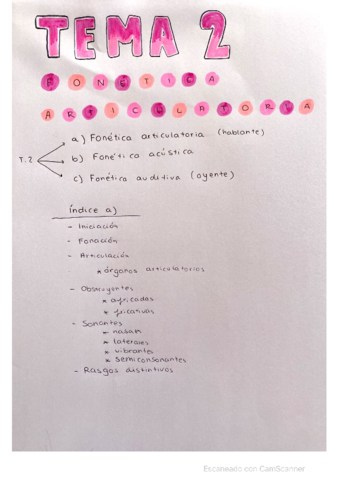 TEMA 2
FONÉTICA
ARTICULATORIA
a) Fonética articulatoria (hablante)
T.2 b) Fonética acústica
c) Fonética auditiva (oyente)
Índice a)
- Iniciación
- Fonación
- Articulación
* órganos articulatorios
- Obstruyentes
* africadas
* fricativas
- Sonantes
- nasales
* laterales
* vibrantes
* semiconsonantes
- Rasgos distintivos
Escaneado con CamScanner